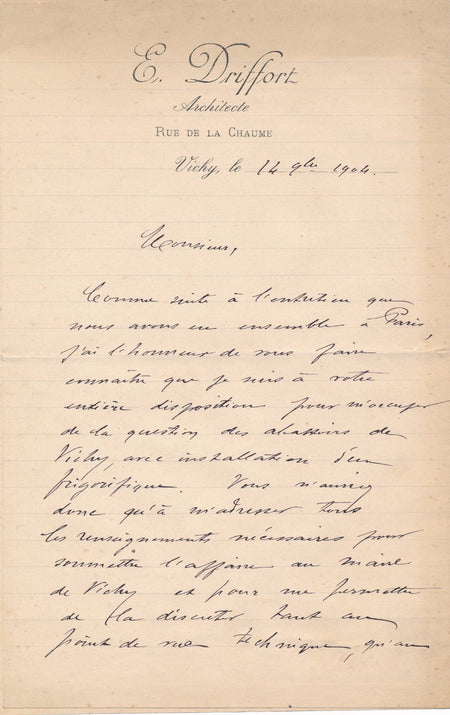 E. Driffort
Architecte
RUE DE LA CHAUME
Vichy, le 14 9bre 1904.
Monsieur,
Comme suite à l'entretien que
nous avons eu ensemble à Paris,
j'ai l'honneur de vous faire
connaître que je suis à votre
entière disposition pour m'occuper
de la question des abattoirs de
Vichy, avec installation d'un
frigorifique. Vous n'aurez
donc qu'à m'adresser tous
les renseignements nécessaires pour
soumettre l'affaire au maire
de Vichy et pour me permettre
de la discuter tant au
point de vue technique, qu'au